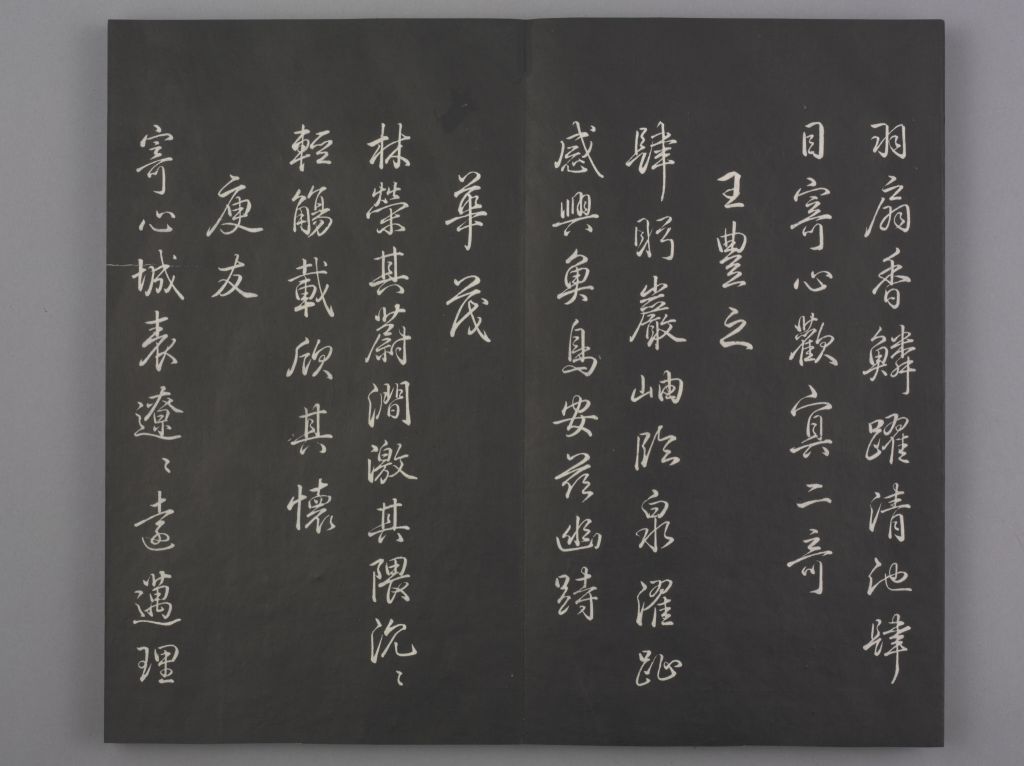 羽扇香鱗躍清池肆
目寄心歡冥二奇
王豐之
肆眄巖岫臨泉濯趾
感興魚鳥安茲幽跱
華茂
林榮其蔚澗激其隈汎〻
輕觴載欣其懷
庾友
寄心域表遼〻遠邁理